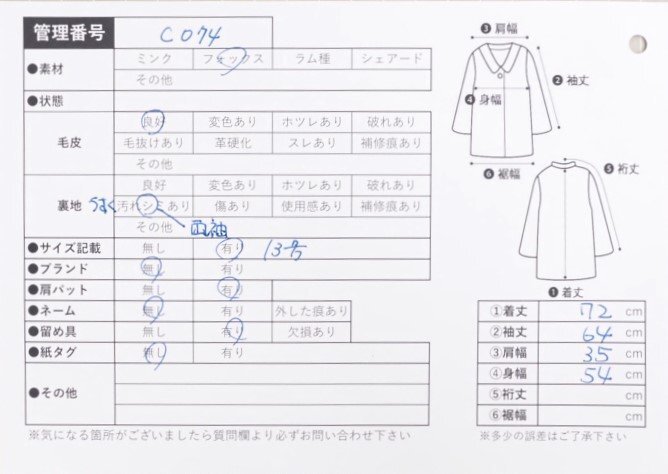 管理番号 C074
●素材 ミンク フォックス ラム種 シェアード
その他
●状態
毛皮 良好 変色あり ホツレあり 破れあり
毛抜けあり 革硬化 スレあり 補修痕あり
その他
裏地 良好 変色あり ホツレあり 破れあり
うすく 汚れシミあり 傷あり 使用感あり 補修痕あり
その他 両袖
●サイズ記載 無し 有り 13号
●ブランド 無し 有り
●肩パット 無し 有り
●ネーム 無し 有り 外した痕あり
●留め具 無し 有り 欠損あり
●紙タグ 無し 有り
●その他
※気になる箇所がございましたら質問欄より必ずお問い合わせ下さい
❸肩幅
❷袖丈
❹身幅
❻裾幅
❺裄丈
❶着丈
①着丈 72 cm
②袖丈 64 cm
③肩幅 35 cm
④身幅 54 cm
⑤裄丈 cm
⑥裾幅 cm
※多少の誤差はご了承下さい